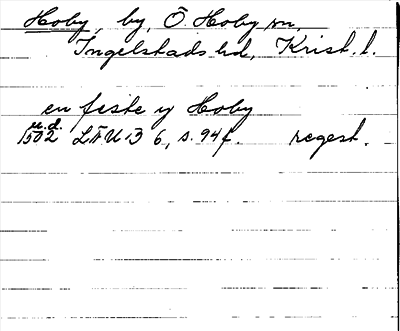 Hoby, by, Ö. Hoby sn,
Ingelstads hd, Krist. l.
en feste y Hoby
u.d.
1502 LÄU 3 6, s. 94 f. regest.